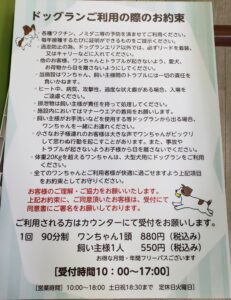 ドッグランご利用の際のお約束
・各種ワクチン、ノミダニ等の予防を済ませてご利用ください。
・毎年接種するたびに証明ができるものをご提示ください。
・逃走防止の為、ドッグランエリア以外では、必ずリードを着装、
又はキャリーなどに入れてください。
・他のお客様、ワンちゃんとトラブルが起きないよう、愛犬、
お荷物から目を離さないようにしてください。
・当施設はワンちゃん、飼い主様間のトラブルには一切の責任を
負いかねます。
・ヒート中、病気、攻撃性、過度な吠え癖がある場合、入場を
ご遠慮ください。
・排泄物は飼い主様が責任を持って処理してください。
・施設内においてはマナーウェアの着用をお願いします。
・飼い主様がお手洗いなどを使用する等ドッグランから出る場合、
ワンちゃんを一緒にお連れください。
・小さなお子様連れのお客様は大きな声でワンちゃんがビックリ
して思わぬ行動を起こすことがあります。また、事故や
トラブルが起きないようお子様から目を離さないでください。
・体重20KGを超えるワンちゃんは、大型犬用にドッグランをご利用
ください。
・全てのワンちゃんとご利用者様が快適に過ごせますよう上記項目
をお約束としてお守りください。
お客様のご理解・ご協力をお願いいたします。
上記お約束に、ご同意頂いたお客様は、受付にて
同意書にご署名をお願いしております。
ご利用される方はカウンターにて受付をお願いします。
1回 90分制 ワンちゃん1頭 880円（税込み）
飼い主様1人 550円（税込み）
お得な月間・年間フリーパスございます
【受付時間10：00〜17:00】
【営業時間】10:00〜18:00 土日祝18:30まで 定休日火曜日